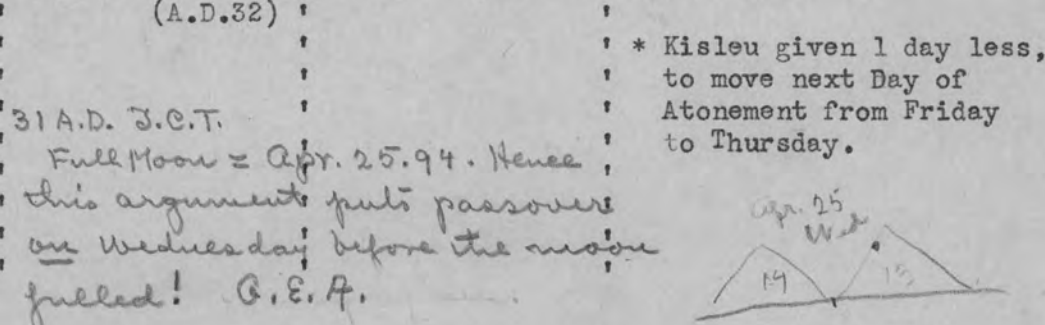 (A.D.32)
* Kisleu given 1 day less,
to move next Day of
Atonement from Friday
to Thursday.
31 A.D. J.C.T.
Full Moon = Apr. 25.94. Hence
this argument puts passover
on Wednesday before the moon
fulled! G.E.A.
Apr. 25
Wed
14
15